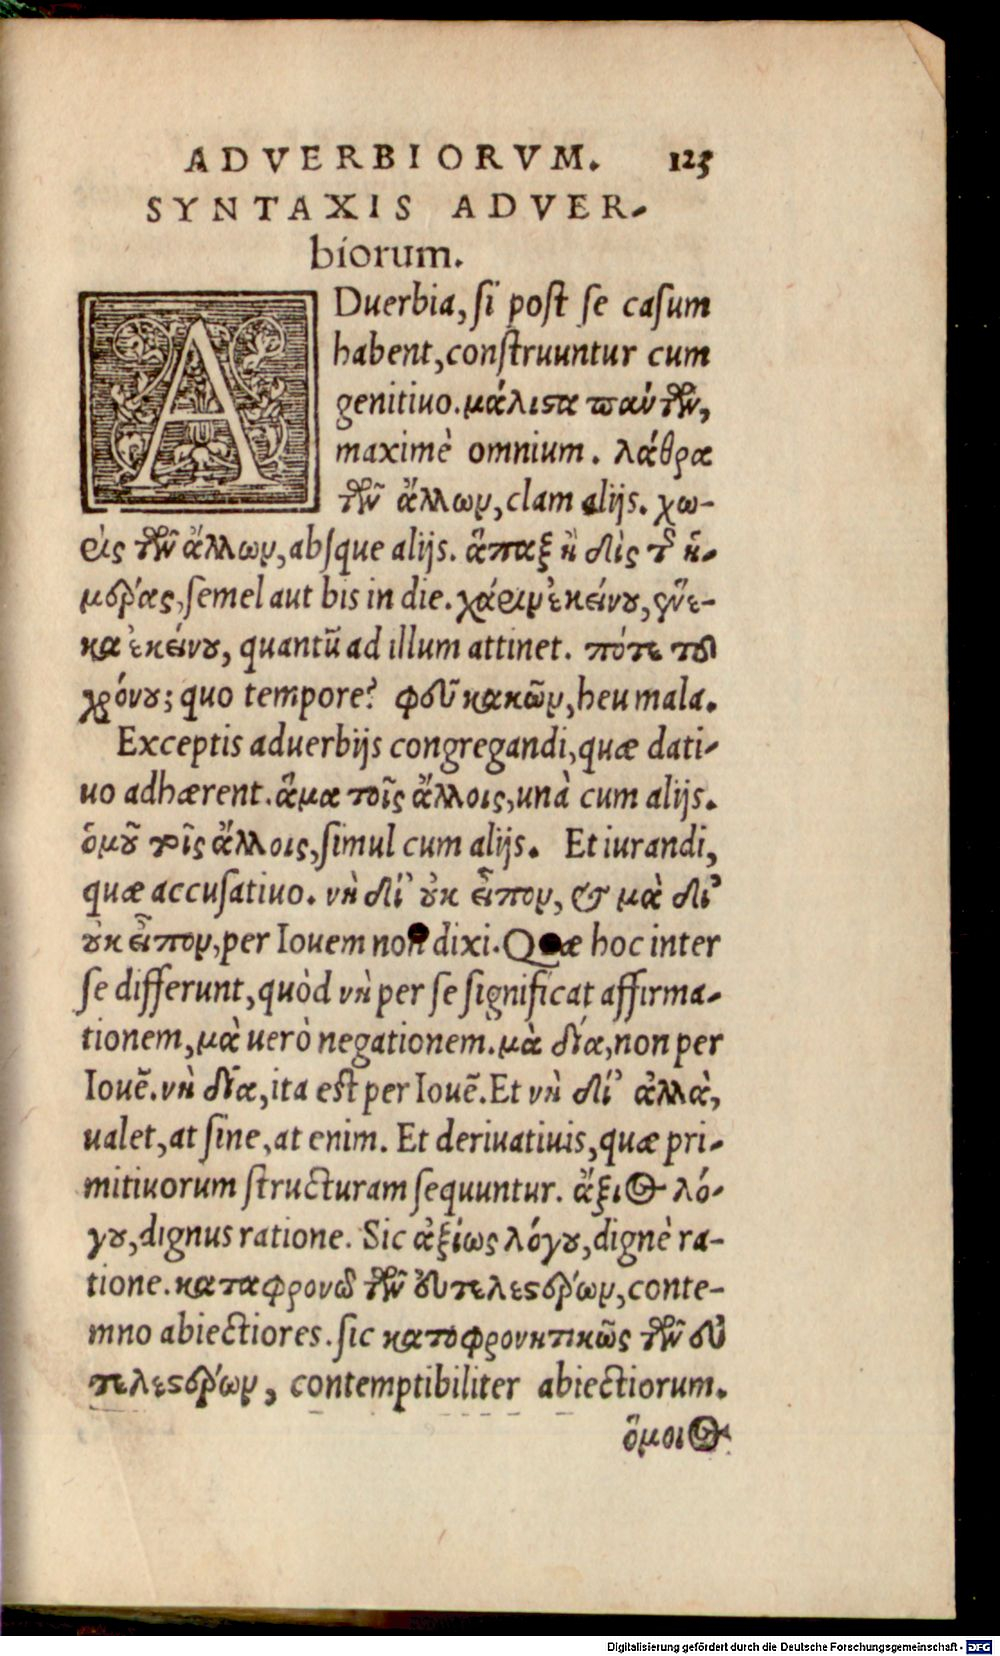 ADVERBIORVM. 125
SYNTAXIS ADVER-
biorum.
ADuerbia, si post se casum
habent, construuntur cum
genitiuo. μάλιστα παντῶν,
maximè omnium. λάθρα
τῶν ἄλλων, clam alijs. χω-
ρὶς τῶν ἄλλων, absque alijs. ἅπαξ ἢ δὶς τῆς ἡ-
μέρας, semel aut bis in die. χάριν ἐκείνου, ἕνε-
κα ἐκείνου, quantũ ad illum attinet. πότε τοῦ
χρόνου; quo tempore? φεῦ κακῶν, heu mala.
Exceptis aduerbijs congregandi, quæ dati-
uo adhærent. ἅμα τοῖς ἄλλοις, unà cum alijs.
ὁμοῦ τοῖς ἄλλοις, simul cum alijs. Et iurandi,
quæ accusatiuo. νὴ δί' οὐκ εἶπον, & μὰ δί'
οὐκ εἶπον, per Iouem non dixi. Quæ hoc inter
se differunt, quòd νὴ per se significat affirma-
tionem, μὰ uerò negationem. μὰ δία, non per
Iouẽ. νὴ δία, ita est per Iouẽ. Et νὴ δί' ἀλλὰ,
ualet, at sine, at enim. Et deriuatiuis, quæ pri-
mitiuorum structuram sequuntur. ἄξιος λό-
γου, dignus ratione. Sic ἀξίως λόγου, dignè ra-
tione. καταφρονῶ τῶν εὐτελεστέρων, conte-
mno abiectiores. sic καταφρονητικῶς τῶν εὐ
τελεστέρων, contemptibiliter abiectiorum.
ὅμοιος
Digitalisierung gefördert durch die Deutsche Forschungsgemeinschaft - DFG